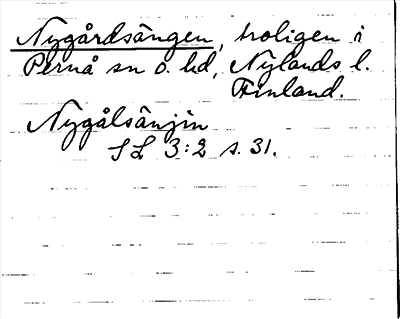 Nygårdsängen, troligen i
Pernå sn o. hd, Nylands l.
Finland.
Nygålsänjin
SL 3:2 s. 31.